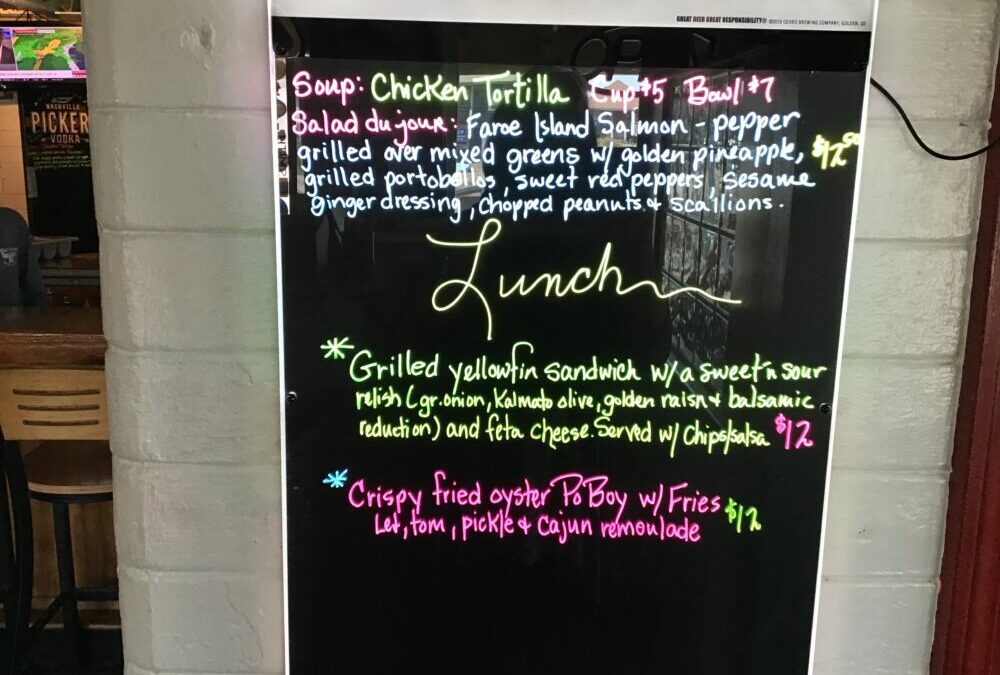 GREAT BEER GREAT RESPONSIBILITY® ©2015 COORS BREWING COMPANY, GOLDEN, CO
Soup: Chicken Tortilla Cup $5 Bowl $7
Salad du jour: Faroe Island Salmon - pepper
grilled over mixed greens w/ golden pineapple, $12.50
grilled portobellos, sweet red peppers, sesame
ginger dressing, chopped peanuts & scallions.
Lunch
* Grilled yellowfin sandwich w/ a sweet 'n sour
relish (gr. onion, Kalmato olive, golden raisn & balsamic
reduction) and feta cheese. Served w/ Chips/salsa $12
* Crispy fried oyster Po Boy w/ Fries $12
Let, tom, pickle & Cajun remoulade
NASHVILLE
PICKERS
VODKA